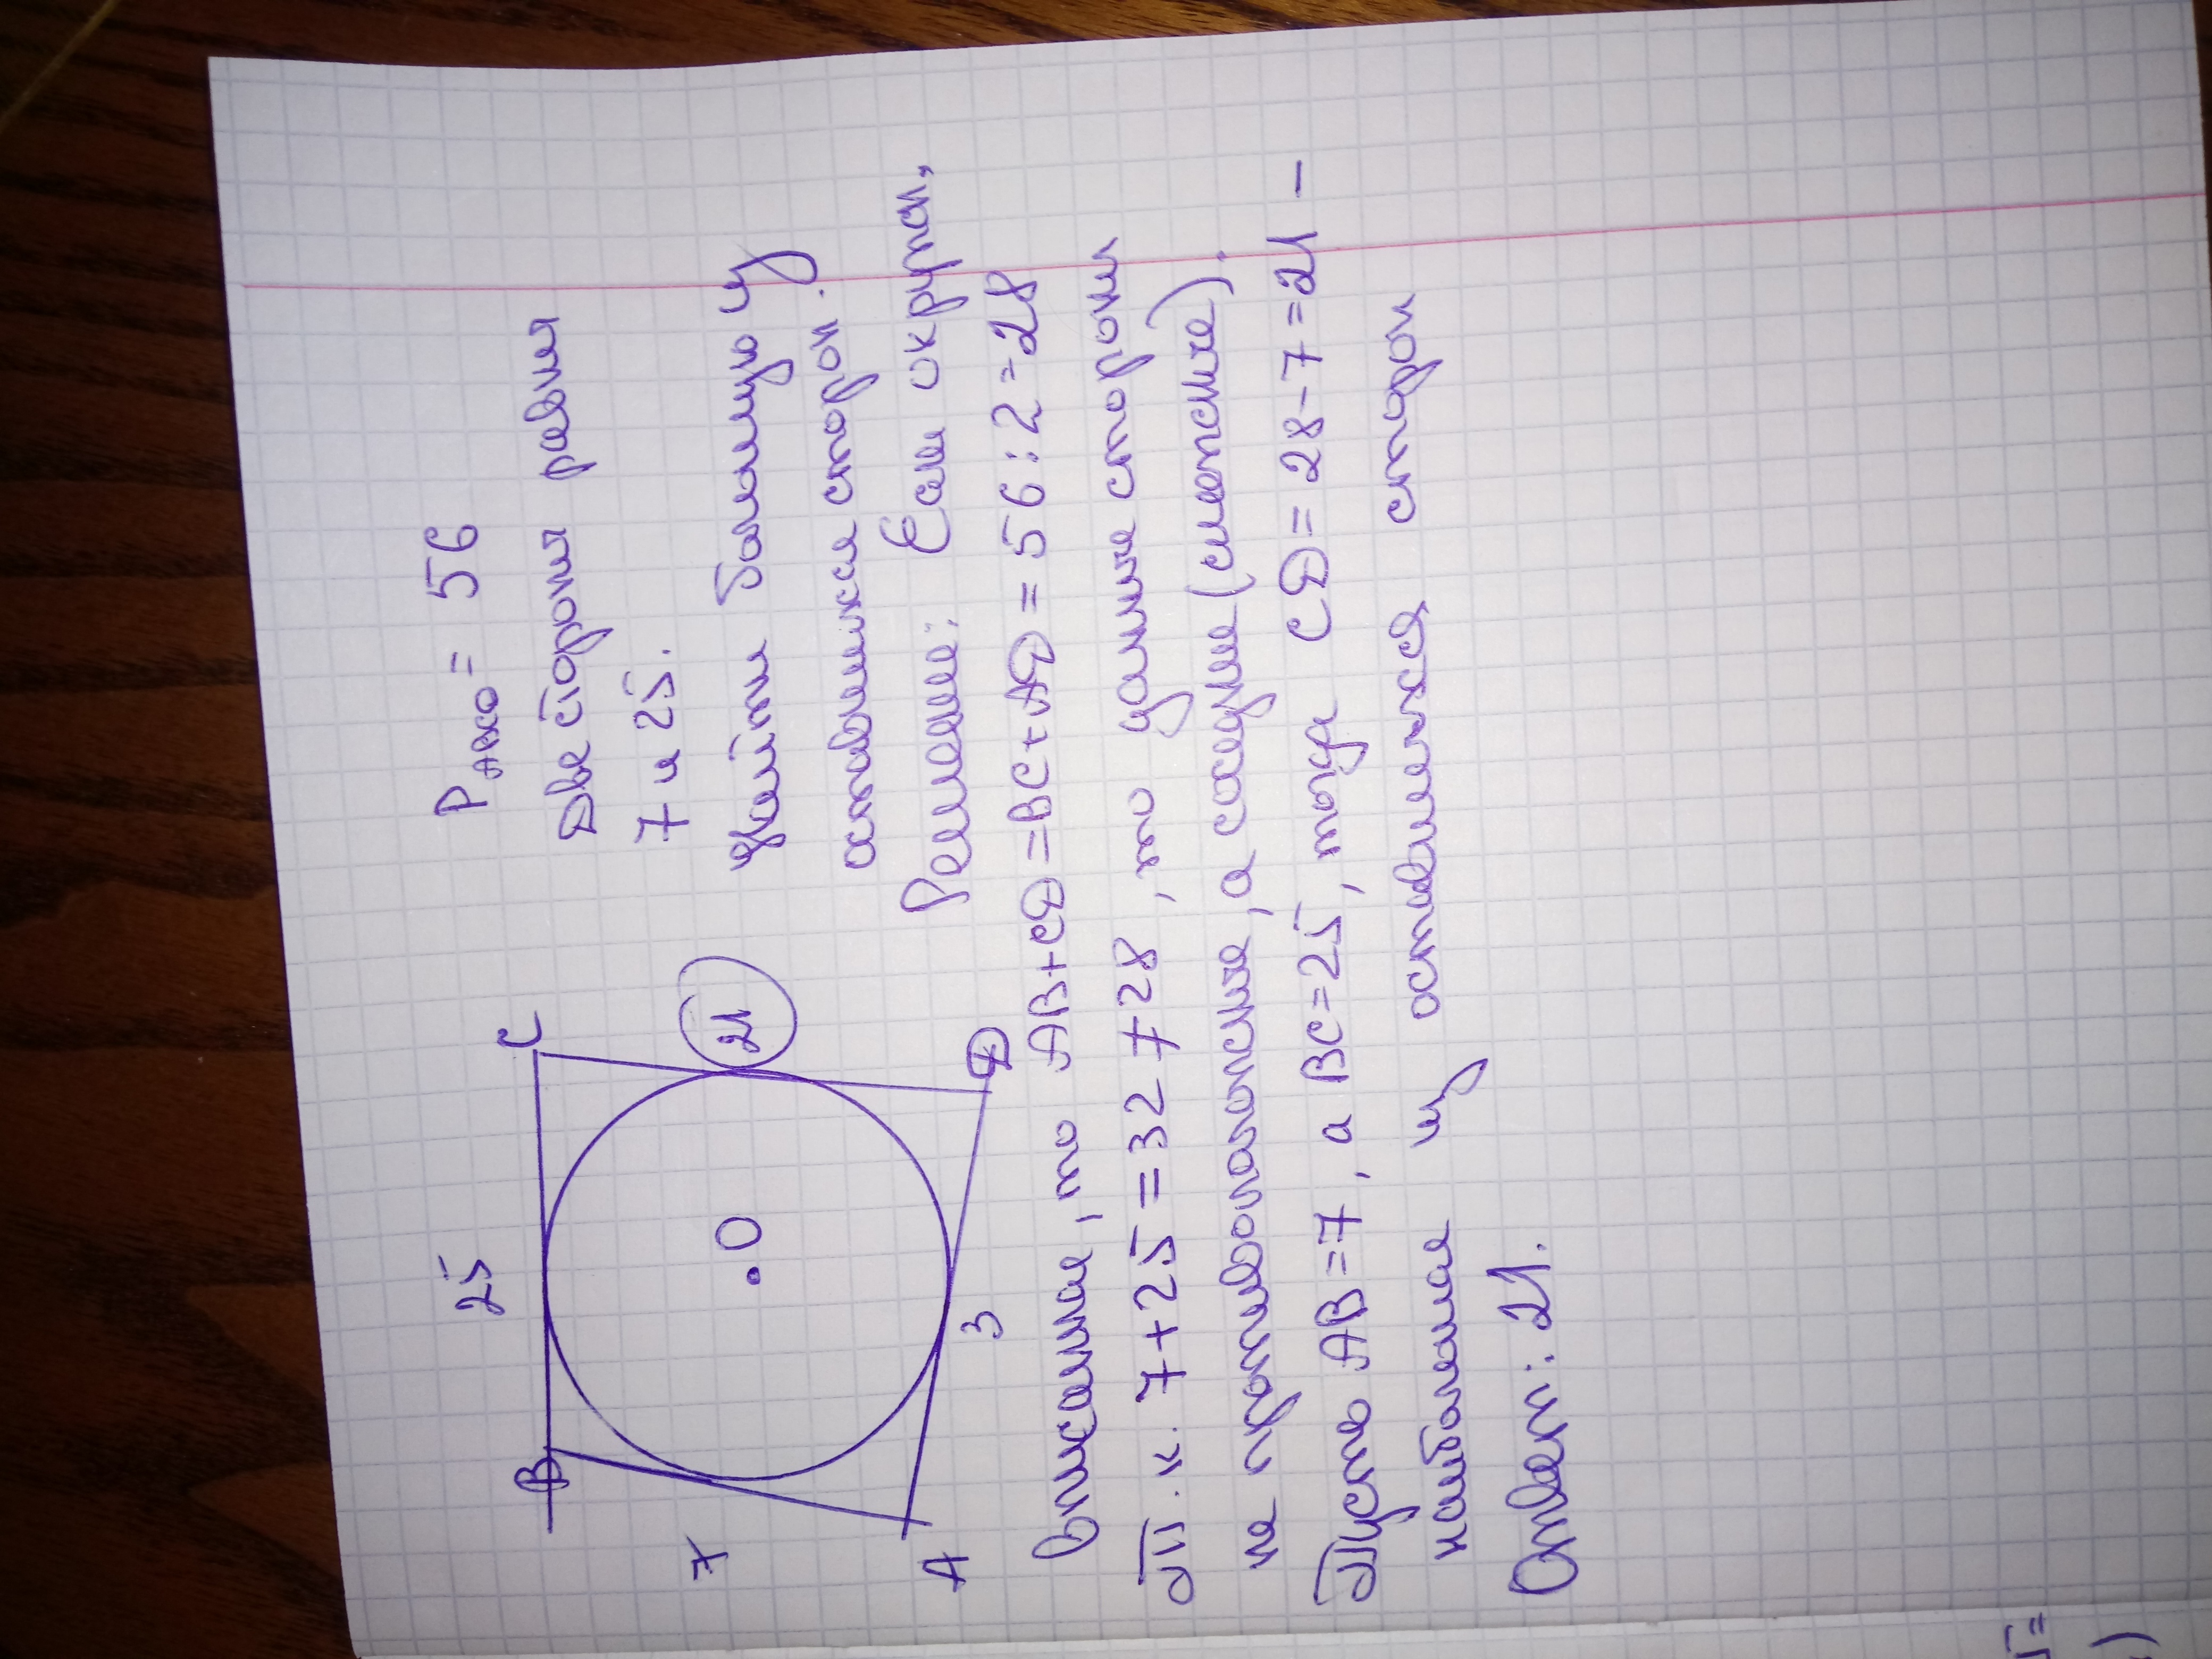 P ABCD = 56
Две стороны равны
7 и 25.
Найти большую из
оставшихся сторон.
Решение: Если окружн.
B
25
C
7
.O
21
A
3
D
вписанная, то AB+CD=BC+AD=56:2=28
Т.к. 7+25=32≠28, то данные стороны
не противоположные, а соседние (смежные).
Пусть AB=7, а BC=25, тогда CD=28-7=21 -
наибольшая из оставшихся сторон
Ответ: 21.